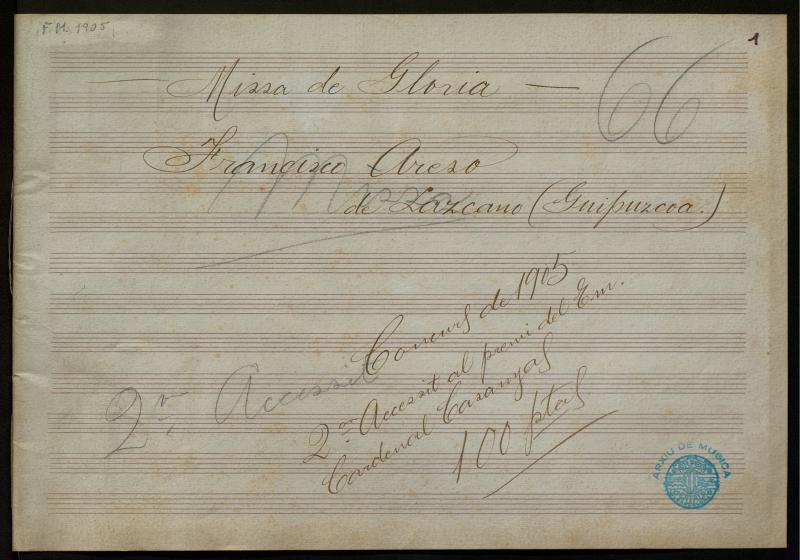 F.M. 1905
1
— Missa de Gloria —
66
Francisco Areso
Missa
de Lazcano (Guipuzcoa.)
Concurs de 1905
2on Accessit al premi del Em.
Cardenal Casanyas
100 ptas
2on Accessit
ARXIU DE MUSICA